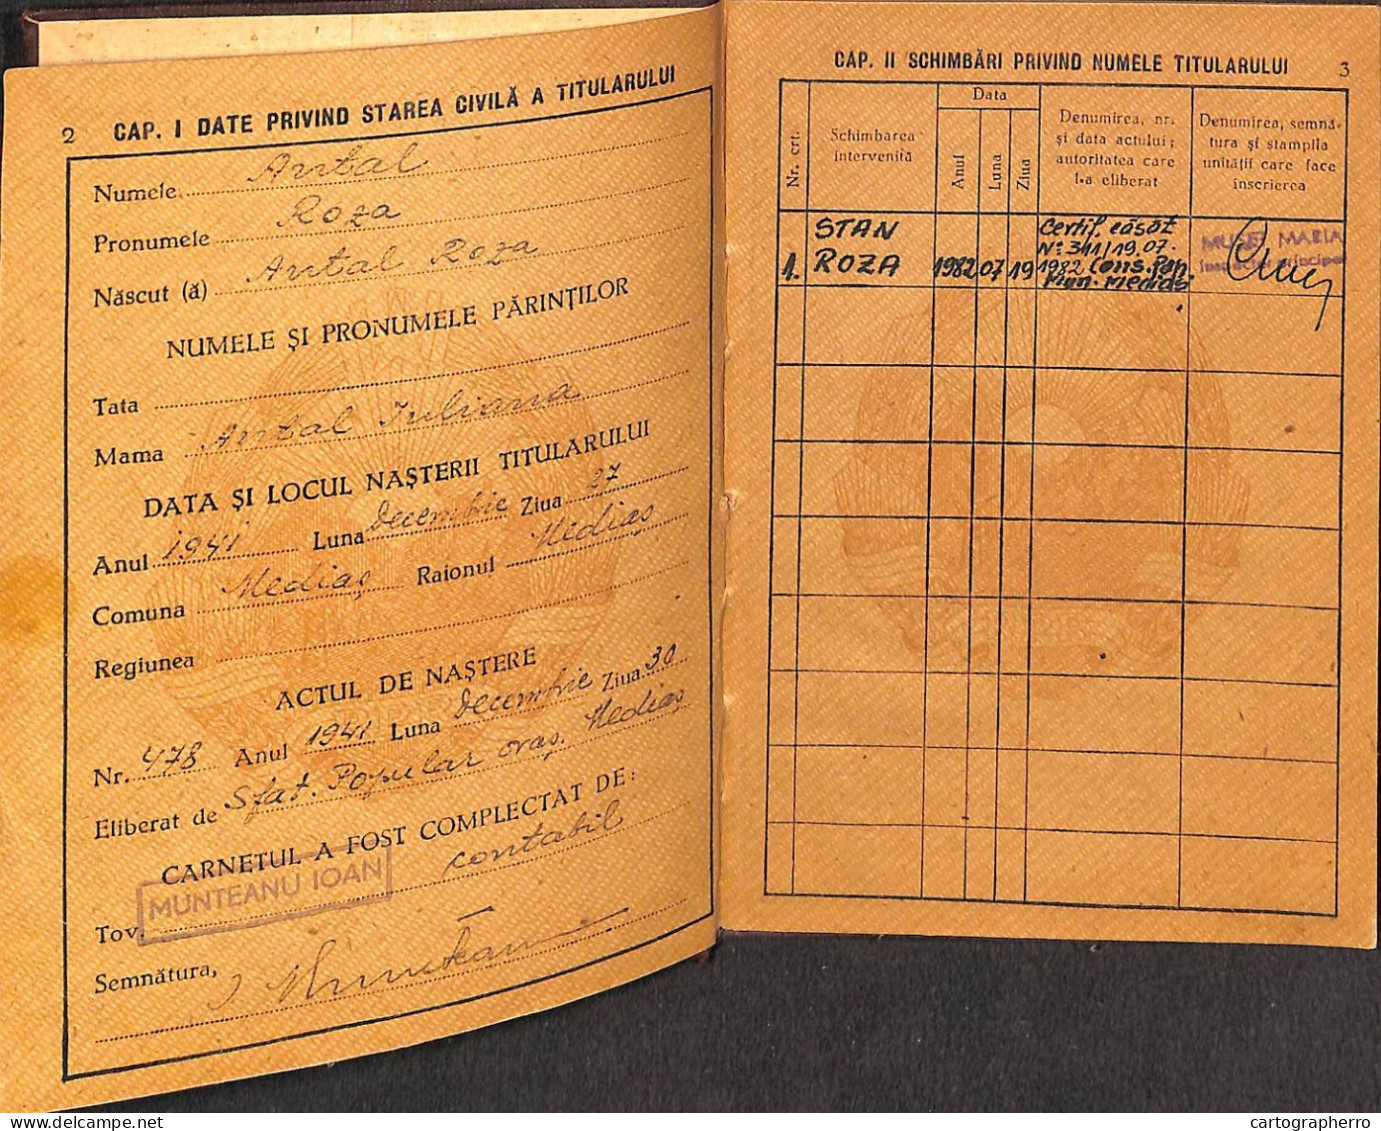 2 CAP. I DATE PRIVIND STAREA CIVILĂ A TITULARULUI
Numele Antal
Pronumele Roza
Născut (ă) Antal Roza
NUMELE ȘI PRONUMELE PĂRINȚILOR
Tata
Mama Antal Iuliana
DATA ȘI LOCUL NAȘTERII TITULARULUI
Anul 1941 Luna Decembrie Ziua 27
Comuna Mediaș Raionul Mediaș
Regiunea
ACTUL DE NAȘTERE
Nr. 478 Anul 1941 Luna Decembrie Ziua 30
Eliberat de Sfat. Popular oraș. Mediaș
CARNETUL A FOST COMPLECTAT DE:
Tov. MUNTEANU IOAN contabil
Semnătura, I Munteanu
CAP. II SCHIMBĂRI PRIVIND NUMELE TITULARULUI 3
Nr. crt.
Schimbarea
intervenită
Data
Anul
Luna
Ziua
Denumirea, nr.
și data actului;
autoritatea care
l-a eliberat
Denumirea, semnă-
tura și stampila
unității care face
inscrierea
1.
STAN
ROZA
1982 07 19
Certif. căsăt
Nº 311/19.07.
1982 Cons. Pop.
Mun. Medias
MARIA
Inspector principal
cartographerro